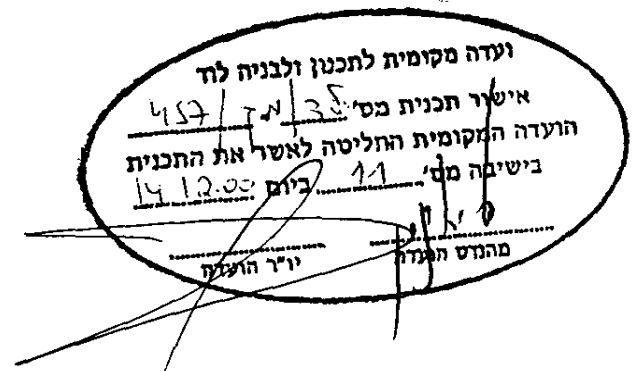 ועדה מקומית לתכנון ולבניה לוד
אישור תכנית מס' 457
הועדה המקומית החליטה לאשר את התכנית
בישיבה מס' 11 ביום 14.12.00
מהנדס הועדה יו"ר הועדה